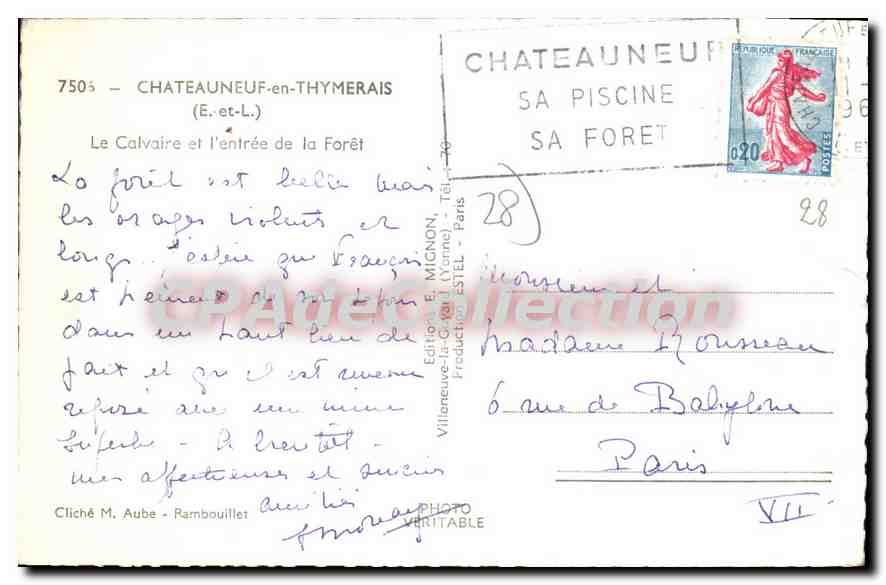 7505 — CHATEAUNEUF-en-THYMERAIS
(E.-et-L.)
Le Calvaire et l'entrée de la Forêt
La forêt est belle mais
les orages violents et
longs. J'espère que François
est
dans un haut lieu de
et qu'il est revenu
reposé avec une mine
superbe - A bientôt -
mes affectueuses et
amitiés
Cliché M. Aube - Rambouillet
PHOTO
VÉRITABLE
Edition E. MIGNON,
Villeneuve-la-Guyard (Yonne) - Tél. : 70
Production ESTEL - Paris
CHATEAUNEUF
SA PISCINE
SA FORET
REPUBLIQUE FRANÇAISE
0,20
POSTES
28
28
Monsieur et
Madame Rousseau
6 rue de Babylone
Paris
VII
CPAdeCollection